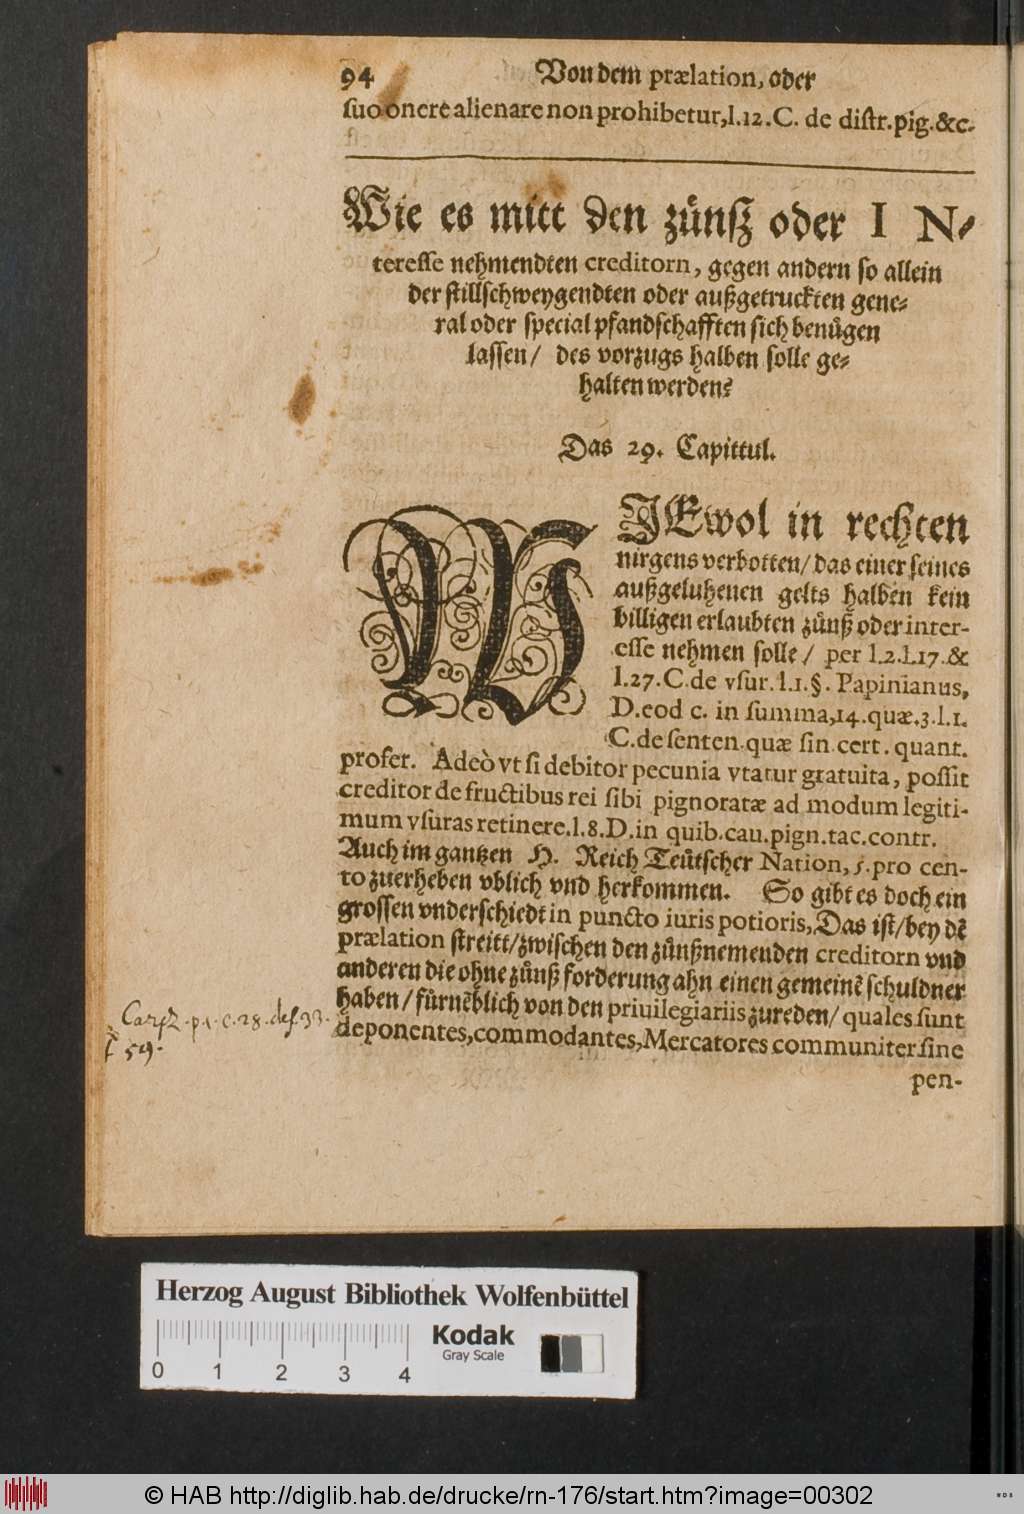 94 Von dem prælation, oder
suo onere alienare non prohibetur, l.12. C. de distr. pig. &c.
Wie es mitt den zůnß oder IN⸗
teresse nehmendten creditorn, gegen andern so allein
der stillschweygendten oder außgetruckten gene⸗
ral oder special pfandschafften sich benůgen
lassen / des vorzugs halben solle ge⸗
halten werden?
Das 29. Capittul.
WIEwol in rechten
nirgens verbotten / das einer seines
außgeluhenen gelts halben kein
billigen erlaubten zůnß oder inter-
esse nehmen solle / per l.2.l.17.&
l.27.C.de vsur.l.1.§. Papinianus,
D.eod c. in summa,14.quæ.3.l.1.
C.de senten.quæ sin cert. quant.
profer. Adeò vt si debitor pecunia vtatur gratuita, possit
creditor de fructibus rei sibi pignoratæ ad modum legiti-
mum vsuras retinere.l.8.D.in quib.cau.pign.tac.contr.
Auch im gantzen H. Reich Teůtscher Nation, 5.pro cen-
to zuerheben vblich vnd herkommen. So gibt es doch ein
grossen vnderschiedt in puncto iuris potioris, Das ist / bey dẽ
prælation streitt / zwischen den zůnßnemenden creditorn vnd
anderen die ohne zůnß forderung ahn einen gemeinẽ schuldner
haben / fůrnẽblich von den priuilegiariis zureden / quales sunt
deponentes, commodantes, Mercatores communiter sine
pen-
Carpz. p.1. c.28. def.33.
59.
Herzog August Bibliothek Wolfenbüttel
Kodak
Gray Scale
0 1 2 3 4
© HAB http://diglib.hab.de/drucke/rn-176/start.htm?image=00302